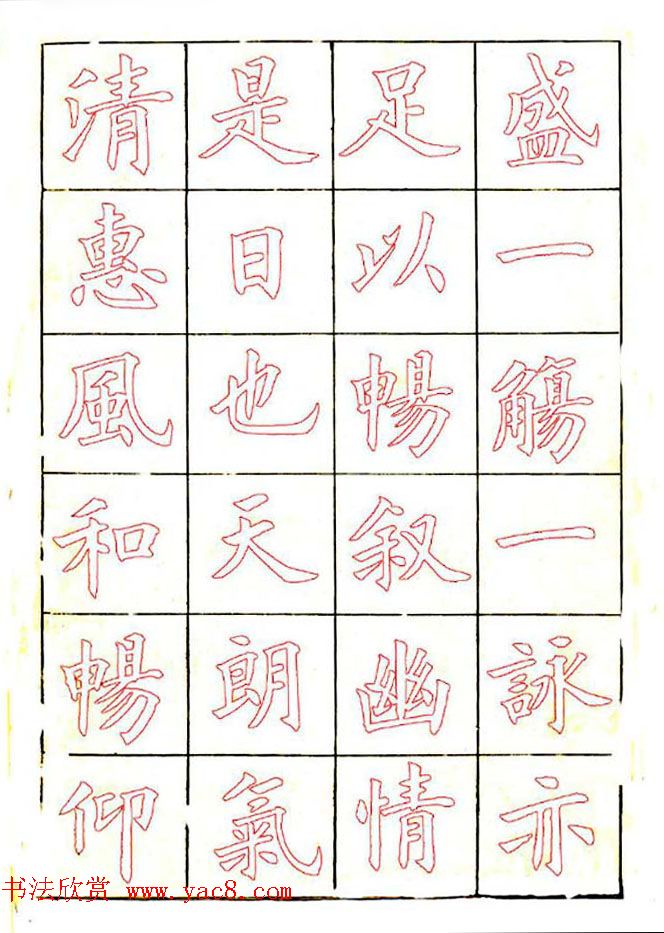 盛一觴一詠亦
足以暢叙幽情
是日也天朗氣
清惠風和暢仰
书法欣赏 www.yac8.com